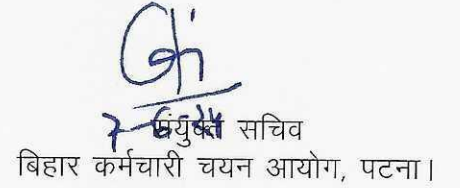 संयुक्त सचिव
बिहार कर्मचारी चयन आयोग, पटना।